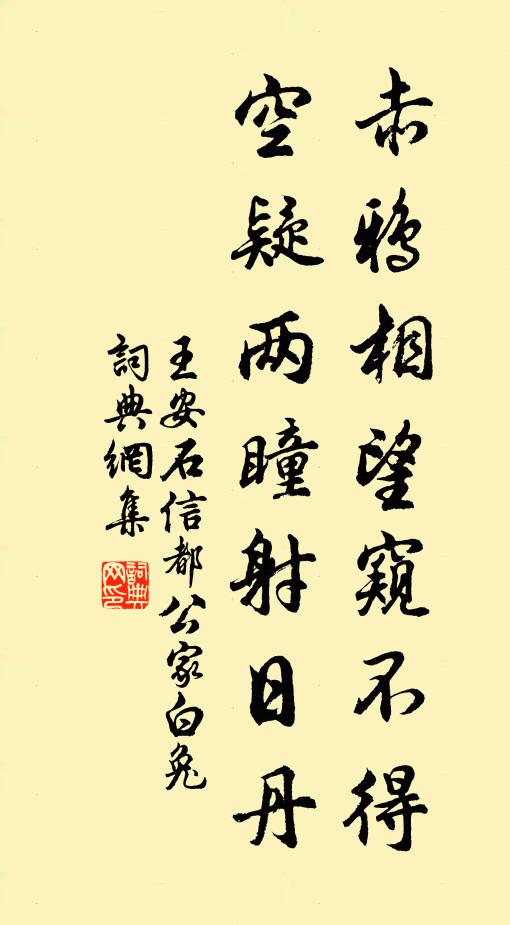 赤鴉相望窺不得
空疑两瞳射日丹
王安石信都公家白兔
詞典網集
詞典
网印